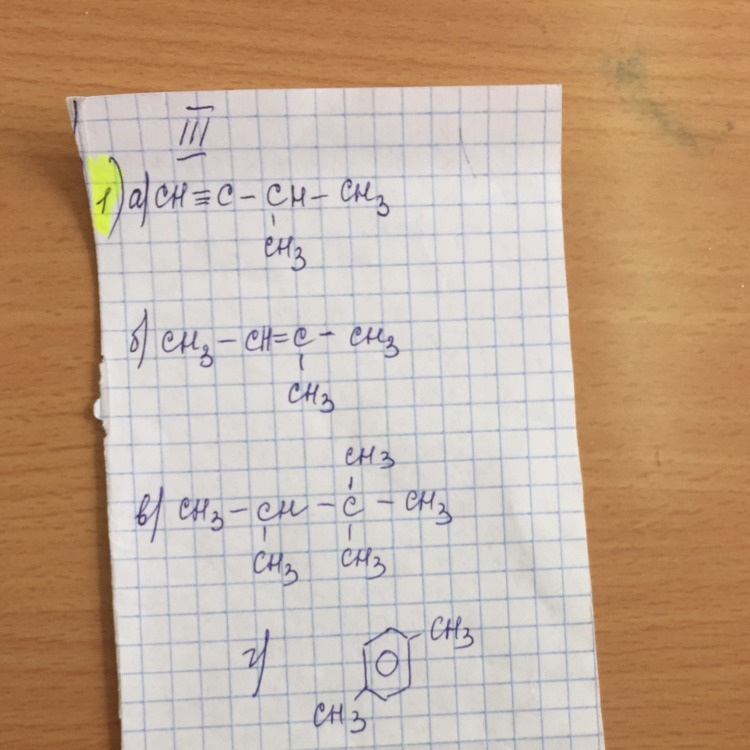 III
1) а) CH≡C – CH – CH₃
CH₃
б) CH₃ – CH=C – CH₃
CH₃
CH₃
в) CH₃ – CH – C – CH₃
CH₃ CH₃
г) CH₃
CH₃